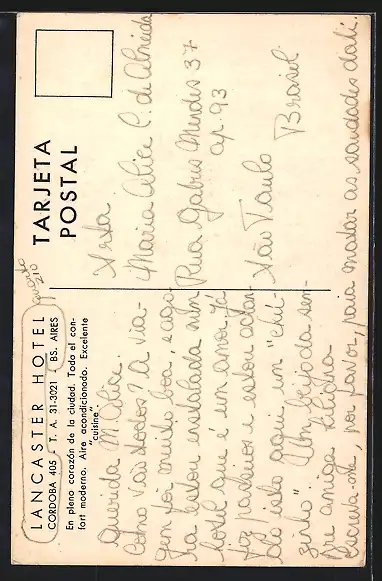 LANCASTER HOTEL
CORDOBA 405 - T. A. 31-3021 - BS. AIRES
En pleno corazón de la ciudad. Todo el con-
fort moderno. Aire acondicionado. Excelente
"cuisine"
quarto
210
TARJETA
POSTAL
Querida Mª Alice.
Como vão todos? A via-
gem foi muito boa, ago-
ra estou instalada num
hotel que é um amor. Já
fiz passeios e estou achan-
do isto aqui um "chu-
zinho" Um beijo da sem-
pre amiga
Escreva-me, por favor, para matar as saudades daí.
Srta
Maria Alice C. de Almeida
Rua Gabus Mendes 37
ap. 93
São Paulo
Brasil